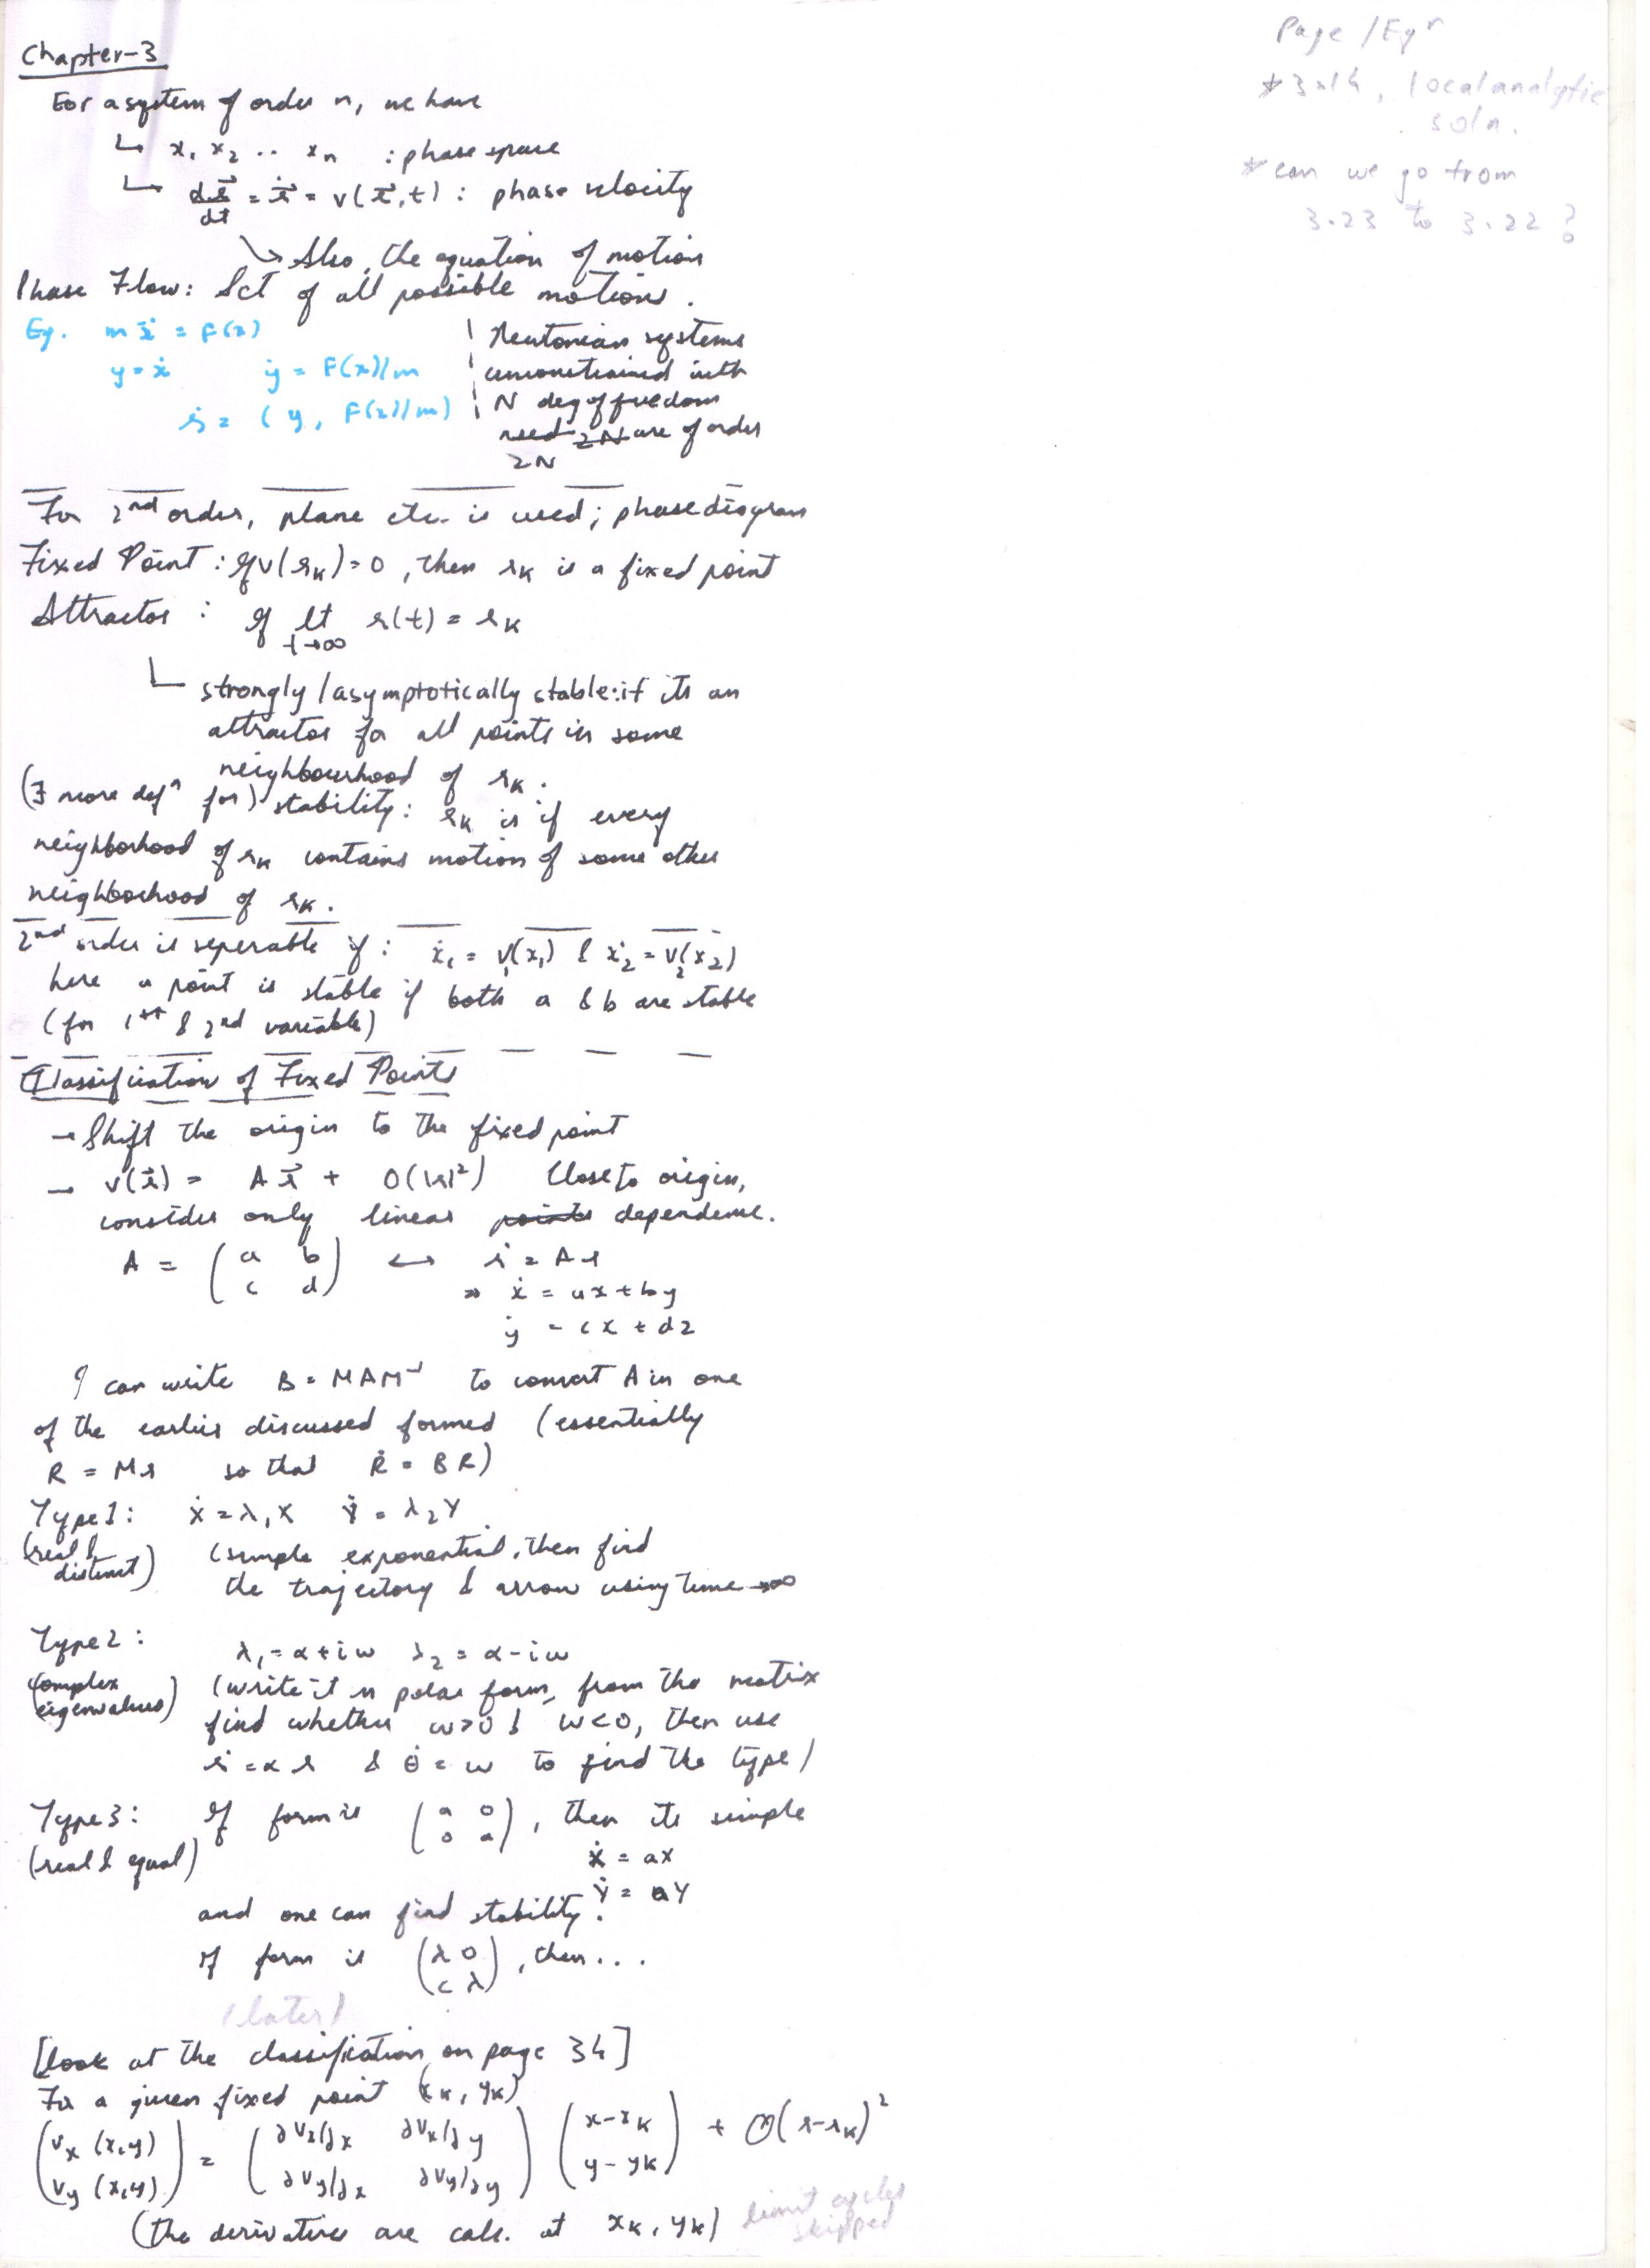 Chapter-3
For a system of order n, we have
↳ x₁ x₂ .. xₙ : phase space
↳ dr⃗/dt = ṙ⃗ = v(r⃗,t) : phase velocity
↘ Also, the equation of motion
Phase Flow: Set of all possible motions.
Eg. mẍ = F(x)
y = ẋ ẏ = F(x)/m
ṙ = (y, F(x)/m)
Newtonian systems
unconstrained with
N deg of freedom
need 2N are of order
2N
For 2nd order, plane etc. is used; phase diagram
Fixed Point: If v(rₖ)=0, then rₖ is a fixed point
Attractor: If lt t→∞ r(t) = rₖ
strongly/asymptotically stable: if its an
attractor for all points in some
neighbourhood of rₖ.
(∃ more defⁿ for) stability: rₖ is if every
neighborhood of rₖ contains motion of some other
neighborhood of rₖ.
2nd order is seperable if: ẋ₁ = v₁(x₁) & ẋ₂ = v₂(x₂)
here a point is stable if both a & b are stable
(for 1st & 2nd variable)
Classification of Fixed Points
→ Shift the origin to the fixed point
→ v(r⃗) = A r⃗ + O(|r|²) Close to origin,
consider only linear points dependence.
A = (a b; c d) ↔ ṙ = Ar
⇒ ẋ = ax + by
ẏ = cx + dz
I can write B = MAM⁻¹ to convert A in one
of the earlier discussed formed (essentially
R = Mr so that Ṙ = BR)
Type 1: Ẋ = λ₁X Ẏ = λ₂Y
(real & distinct) (simple exponential, then find
the trajectory & arrow using time→∞
Type 2: λ₁ = α+iω λ₂ = α-iω
(complex eigenvalues) (write it in polar form, from the matrix
find whether ω>0 & ω<0, then use
ṙ = αr & θ̇ = ω to find the type)
Type 3: If form is (a 0; 0 a), then its simple
(real & equal) Ẋ = aX
Ẏ = aY
and one can find stability.
If form is (λ 0; c λ), then...
(later)
[look at the classification on page 34]
For a given fixed point (xₖ, yₖ)
(vₓ(x,y); v_y(x,y)) = (∂vₓ/∂x ∂vₓ/∂y; ∂v_y/∂x ∂v_y/∂y) (x-xₖ; y-yₖ) + O(r-rₖ)²
(the derivatives are calc. at xₖ, yₖ)
limit cycles
skipped
Page/Eqⁿ
* 3.14, local analytic
soln.
* can we go from
3.23 to 3.22?